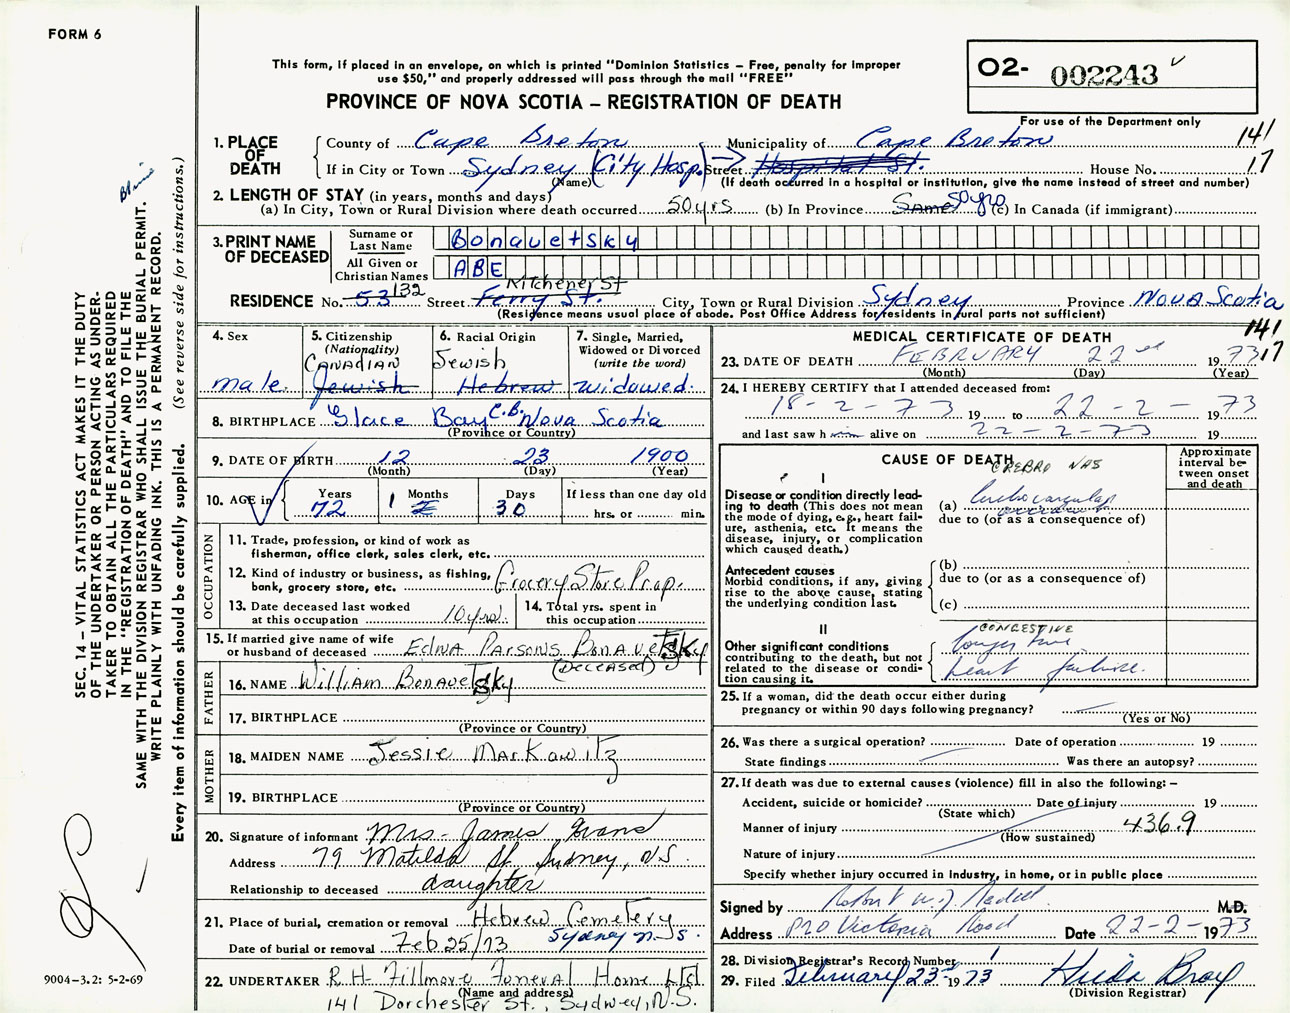 FORM 6
This form, if placed in an envelope, on which is printed "Dominion Statistics – Free, penalty for improper
use $50," and properly addressed will pass through the mail "FREE"
PROVINCE OF NOVA SCOTIA – REGISTRATION OF DEATH
O2- 002243
For use of the Department only
141
17
1. PLACE OF DEATH
County of Cape Breton Municipality of Cape Breton
If in City or Town Sydney (City Hosp.) Street Hospital St. House No.
(Name) (If death occurred in a hospital or institution, give the name instead of street and number)
2. LENGTH OF STAY (in years, months and days)
(a) In City, Town or Rural Division where death occurred 50 yrs (b) In Province Same 50 yrs (c) In Canada (if immigrant)
3. PRINT NAME OF DECEASED
Surname or Last Name Bonavetsky
All Given or Christian Names ABE
Kitchener St
RESIDENCE No. 53 132 Street Ferry St. City, Town or Rural Division Sydney Province Nova Scotia
(Residence means usual place of abode. Post Office Address for residents in rural parts not sufficient)
4. Sex
male
5. Citizenship
(Nationality)
CANADIAN
Jewish
6. Racial Origin
Jewish
Hebrew
7. Single, Married,
Widowed or Divorced
(write the word)
widowed
8. BIRTHPLACE Glace Bay C.B. Nova Scotia
(Province or Country)
9. DATE OF BIRTH 12 23 1900
(Month) (Day) (Year)
10. AGE in
Years Months Days If less than one day old
72 1 2 30 hrs. or min.
OCCUPATION
11. Trade, profession, or kind of work as
fisherman, office clerk, sales clerk, etc.
12. Kind of industry or business, as fishing,
bank, grocery store, etc. Grocery Store Prop.
13. Date deceased last worked
at this occupation 10 yrs.
14. Total yrs. spent in
this occupation
15. If married give name of wife
or husband of deceased Edna Parsons Bonavetsky
(Deceased)
FATHER
16. NAME William Bonavetsky
17. BIRTHPLACE
(Province or Country)
MOTHER
18. MAIDEN NAME Jessie Markowitz
19. BIRTHPLACE
(Province or Country)
20. Signature of informant Mrs. James Evans
Address 79 Matilda St Sydney, N.S.
Relationship to deceased daughter
21. Place of burial, cremation or removal Hebrew Cemetery
Date of burial or removal Feb 25/73 Sydney N.S.
22. UNDERTAKER R.H. Fillmore Funeral Home Ltd
(Name and address)
141 Dorchester St., Sydney, N.S.
MEDICAL CERTIFICATE OF DEATH
141
17
23. DATE OF DEATH FEBRUARY 22nd 1973
(Month) (Day) (Year)
24. I HEREBY CERTIFY that I attended deceased from:
18-2-73 19 to 22-2- 1973
and last saw h alive on 22-2-73 19
CAUSE OF DEATH
Approximate interval between onset and death
CREBRO VAS
I
Disease or condition directly leading to death (This does not mean the mode of dying, e.g., heart failure, asthenia, etc. It means the disease, injury, or complication which caused death.)
(a) Cerebrovascular accident
due to (or as a consequence of)
Antecedent causes
Morbid conditions, if any, giving rise to the above cause, stating the underlying condition last.
(b)
due to (or as a consequence of)
(c)
II
Other significant conditions
contributing to the death, but not related to the disease or condition causing it.
CONGESTIVE
Congestive
heart failure.
25. If a woman, did the death occur either during
pregnancy or within 90 days following pregnancy?
(Yes or No)
26. Was there a surgical operation? Date of operation 19
State findings Was there an autopsy?
27. If death was due to external causes (violence) fill in also the following: –
Accident, suicide or homicide? Date of injury 19
(State which)
Manner of injury 436.9
(How sustained)
Nature of injury
Specify whether injury occurred in industry, in home, or in public place
Signed by Robert W. J. M.D.
Address Victoria Road Date 22-2-1973
28. Division Registrar's Record Number 1
29. Filed February 23rd 1973
(Division Registrar)
SEC. 14 – VITAL STATISTICS ACT MAKES IT THE DUTY
OF THE UNDERTAKER OR PERSON ACTING AS UNDER-
TAKER TO OBTAIN ALL THE PARTICULARS REQUIRED
IN THE "REGISTRATION OF DEATH" AND TO FILE THE
SAME WITH THE DIVISION REGISTRAR WHO SHALL ISSUE THE BURIAL PERMIT.
WRITE PLAINLY WITH UNFADING INK. THIS IS A PERMANENT RECORD.
Every item of information should be carefully supplied. (See reverse side for instructions.)
9004–3.2: 5-2-69